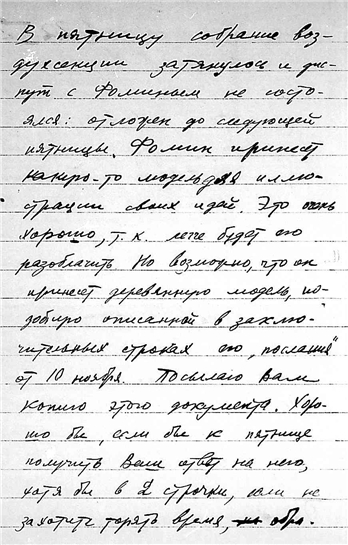 В пятницу собрание воз-
духсекции затянулось и дис-
пут с Фоминым не состо-
ялся: отложен до следующей
пятницы. Фомин принесет
какую-то модель для иллю-
страции своих идей. Это очень
хорошо, т. к. легче будет его
разоблачить Но возможно, что он
принесет деревянную модель, по-
добную описанной в заклю-
чительных строках его „послания"
от 10 ноября. Посылаю Вам
копию этого документа. Хоро-
шо бы, если бы к пятнице
получить Ваш ответ на него,
хотя бы в 2 строчки, если не
захотите терять время,